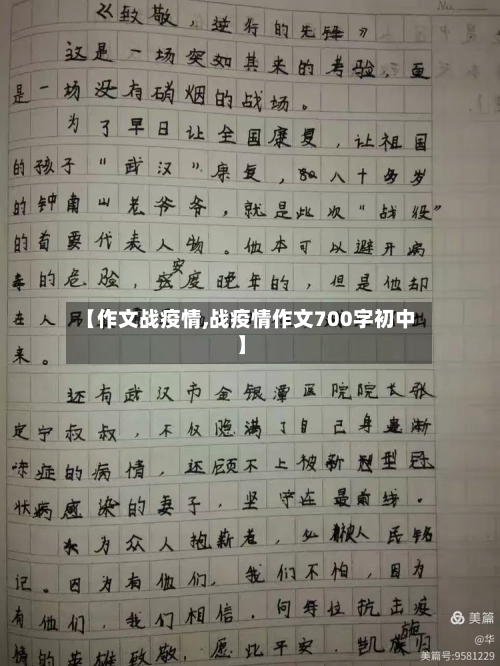 《致敬,逆行的先锋》
这是一场突如其来的考验,更
是一场没有硝烟的战场。
为了早日让全国康复,让祖国
的孩子“武汉”康复,八十多岁
的钟南山老爷爷,就是此次“战役”
的首要代表人物。他本可以避开病
毒的危险,安度晚年的,但是他却
在人民
【作文战疫情,战疫情作文700字初中
】
来。
还有武汉市金银潭医院院长张
定宇叔叔,不仅隐满了自己身患渐
冻症的病情,还顾不上被新型冠
状病感染的妻子,坚守在最前线。
为众人抱薪者,必被人民铭
记。因为有他们,我们不怕,因为
有他们,我们相信,向每位抗击疫
情的英雄致敬,愿此平安,凯旋归
美篇
@华
美篇号:9581229